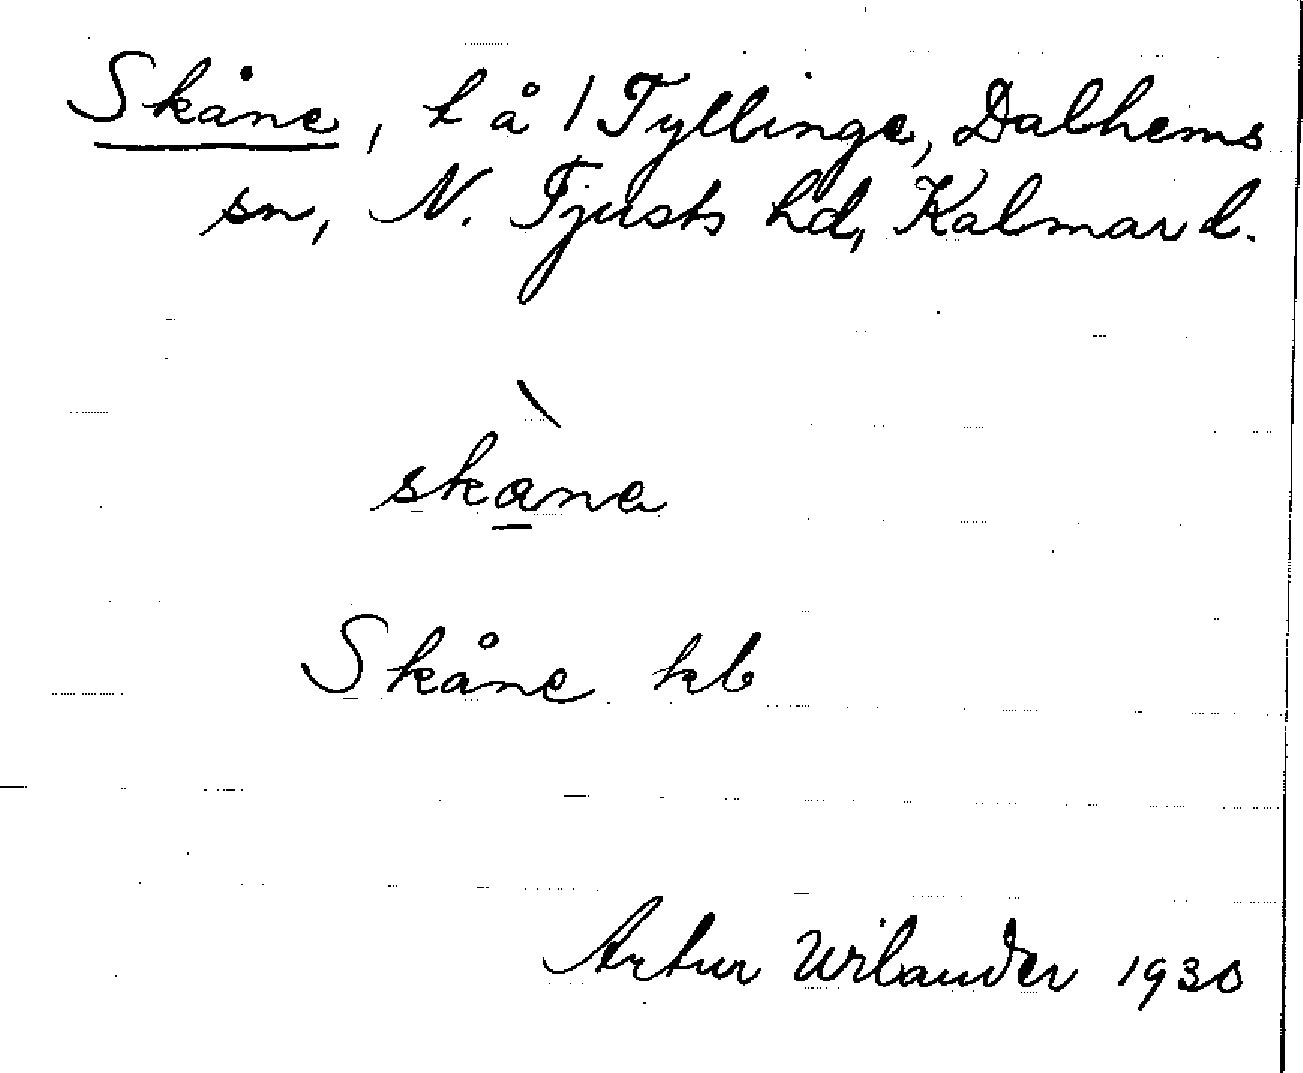 Skåne, t å 1 Tyllinge, Dalhems
sn, N. Tjusts hd, Kalmar l.
skana
Skåne kb
Artur Wilander 1930